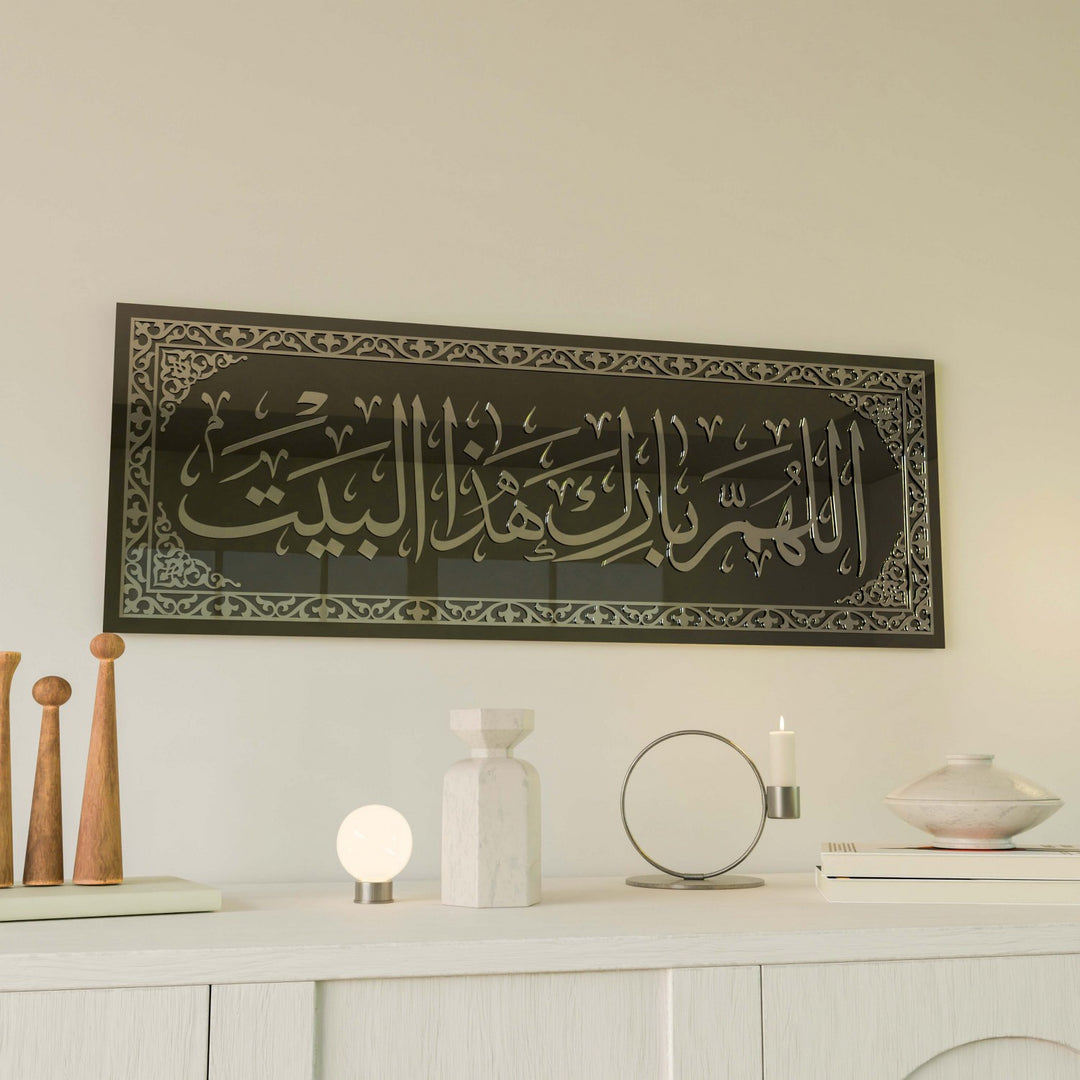 اللهُمَّ بارِك هَذا البَيْت